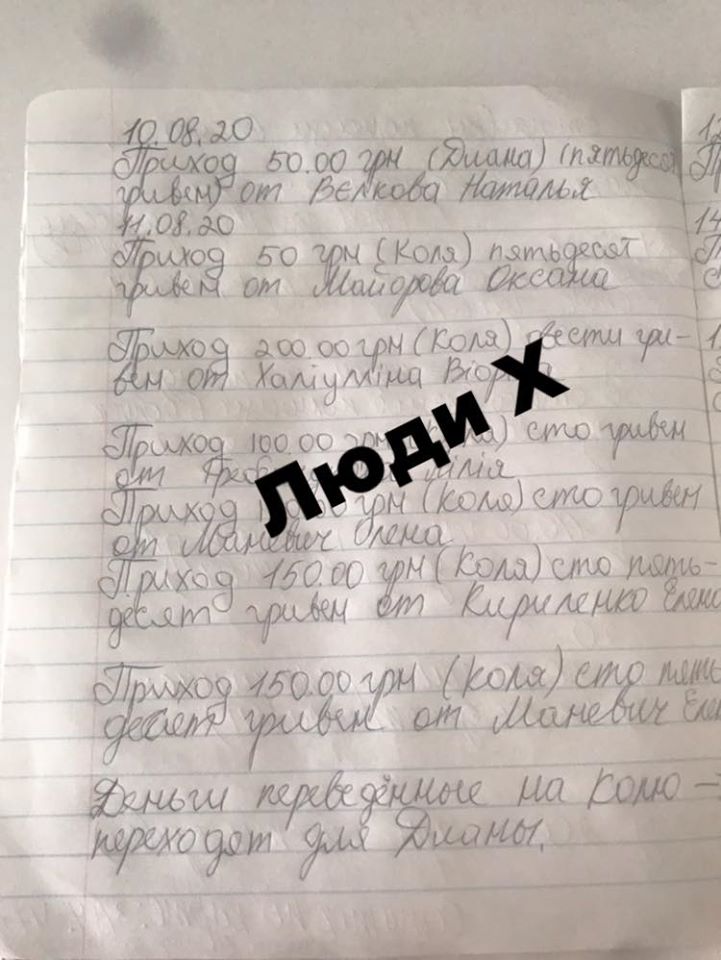 10.08.20
Приход 50.00 грн (Диана) (пятьдесят
гривен) от Вєлкова Наталья
11.08.20
Приход 50 грн (Коля) пятьдесят
гривен от Майорова Оксана
Приход 200.00 грн (Коля) двести гри-
вен от Халіуліна
Люди X
Приход 100.00 грн сто гривен
от Лілія
Приход грн (Коля) сто гривен
от Маневич Олена
Приход 150.00 грн (Коля) сто пять-
десят гривен от Кириленко
Приход 150.00 грн (Коля) сто пять
десят гривен от Маневич
Деньги переведённые на Колю –
переходят для Дианы.